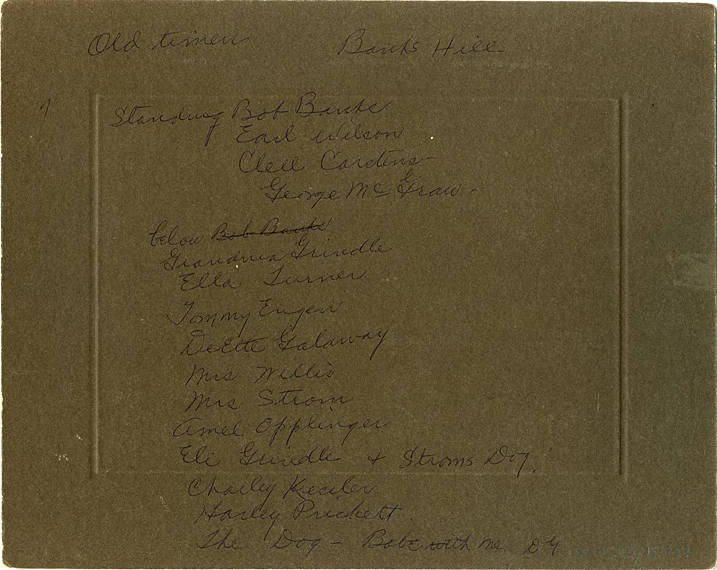 Old timers Banks Hill
Standing Bob Banks
Earl Wilson
Clell Carstens
George McGraw
below Bob Banks
Grandma Grindle
Ella Turner
Tommy Eugen
DeEtte Galaway
Mrs Willis
Mrs Strom
Amel Opplinger
Eli Grindle & Stroms Dog.
Charley Kesiler
Harley Prickett
The Dog - Babe with me DG